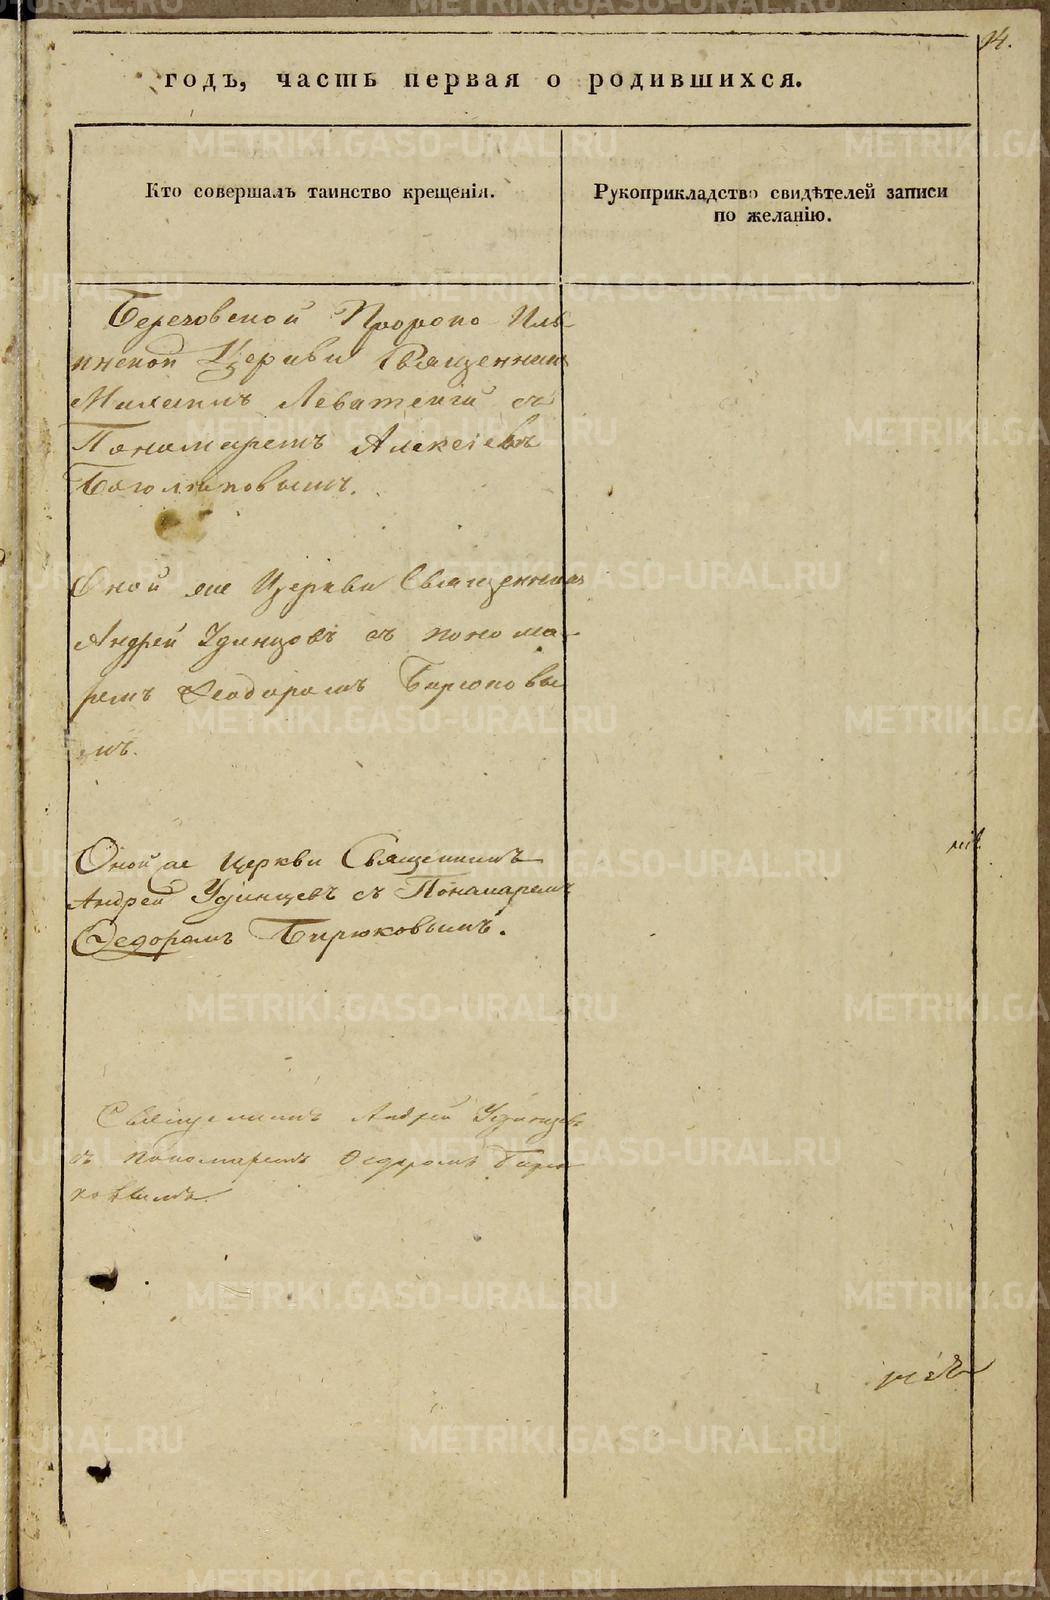 годъ, часть первая о родившихся.
Кто совершалъ таинство крещенія.
Рукоприкладство свидѣтелей записи
по желанію.
Береговской Пророко Иль
инской Церкви Священник
Михаилъ Левитскій съ
Пономаремъ Алексіевъ
Боголюповымъ.
Оной же Церкви Священникъ
Андрей Удинцовъ съ понома-
ремъ Феодоромъ Бирюковы
мъ.
Оной же Церкви Священникъ
Андрей Удинцевъ съ Понамаремъ
Федоромъ Бирюковымъ.
Священникъ Андрей Удинцевъ
съ пономаремъ Федоромъ Бирю
ковымъ
METRIKI.GASO-URAL.RU